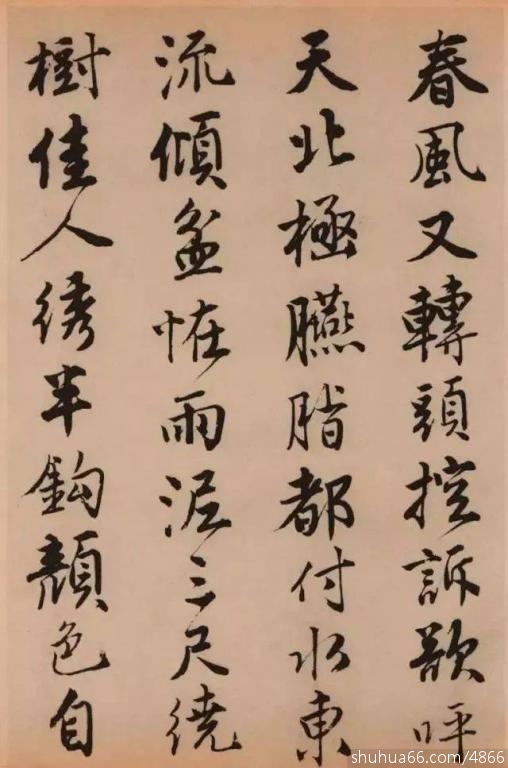 春風又轉頭控訴歌呼
天北極臙脂都付水東
流傾盆恠雨泥三尺繞
樹佳人綉半鈎顏色自
shuhua66.com/4866